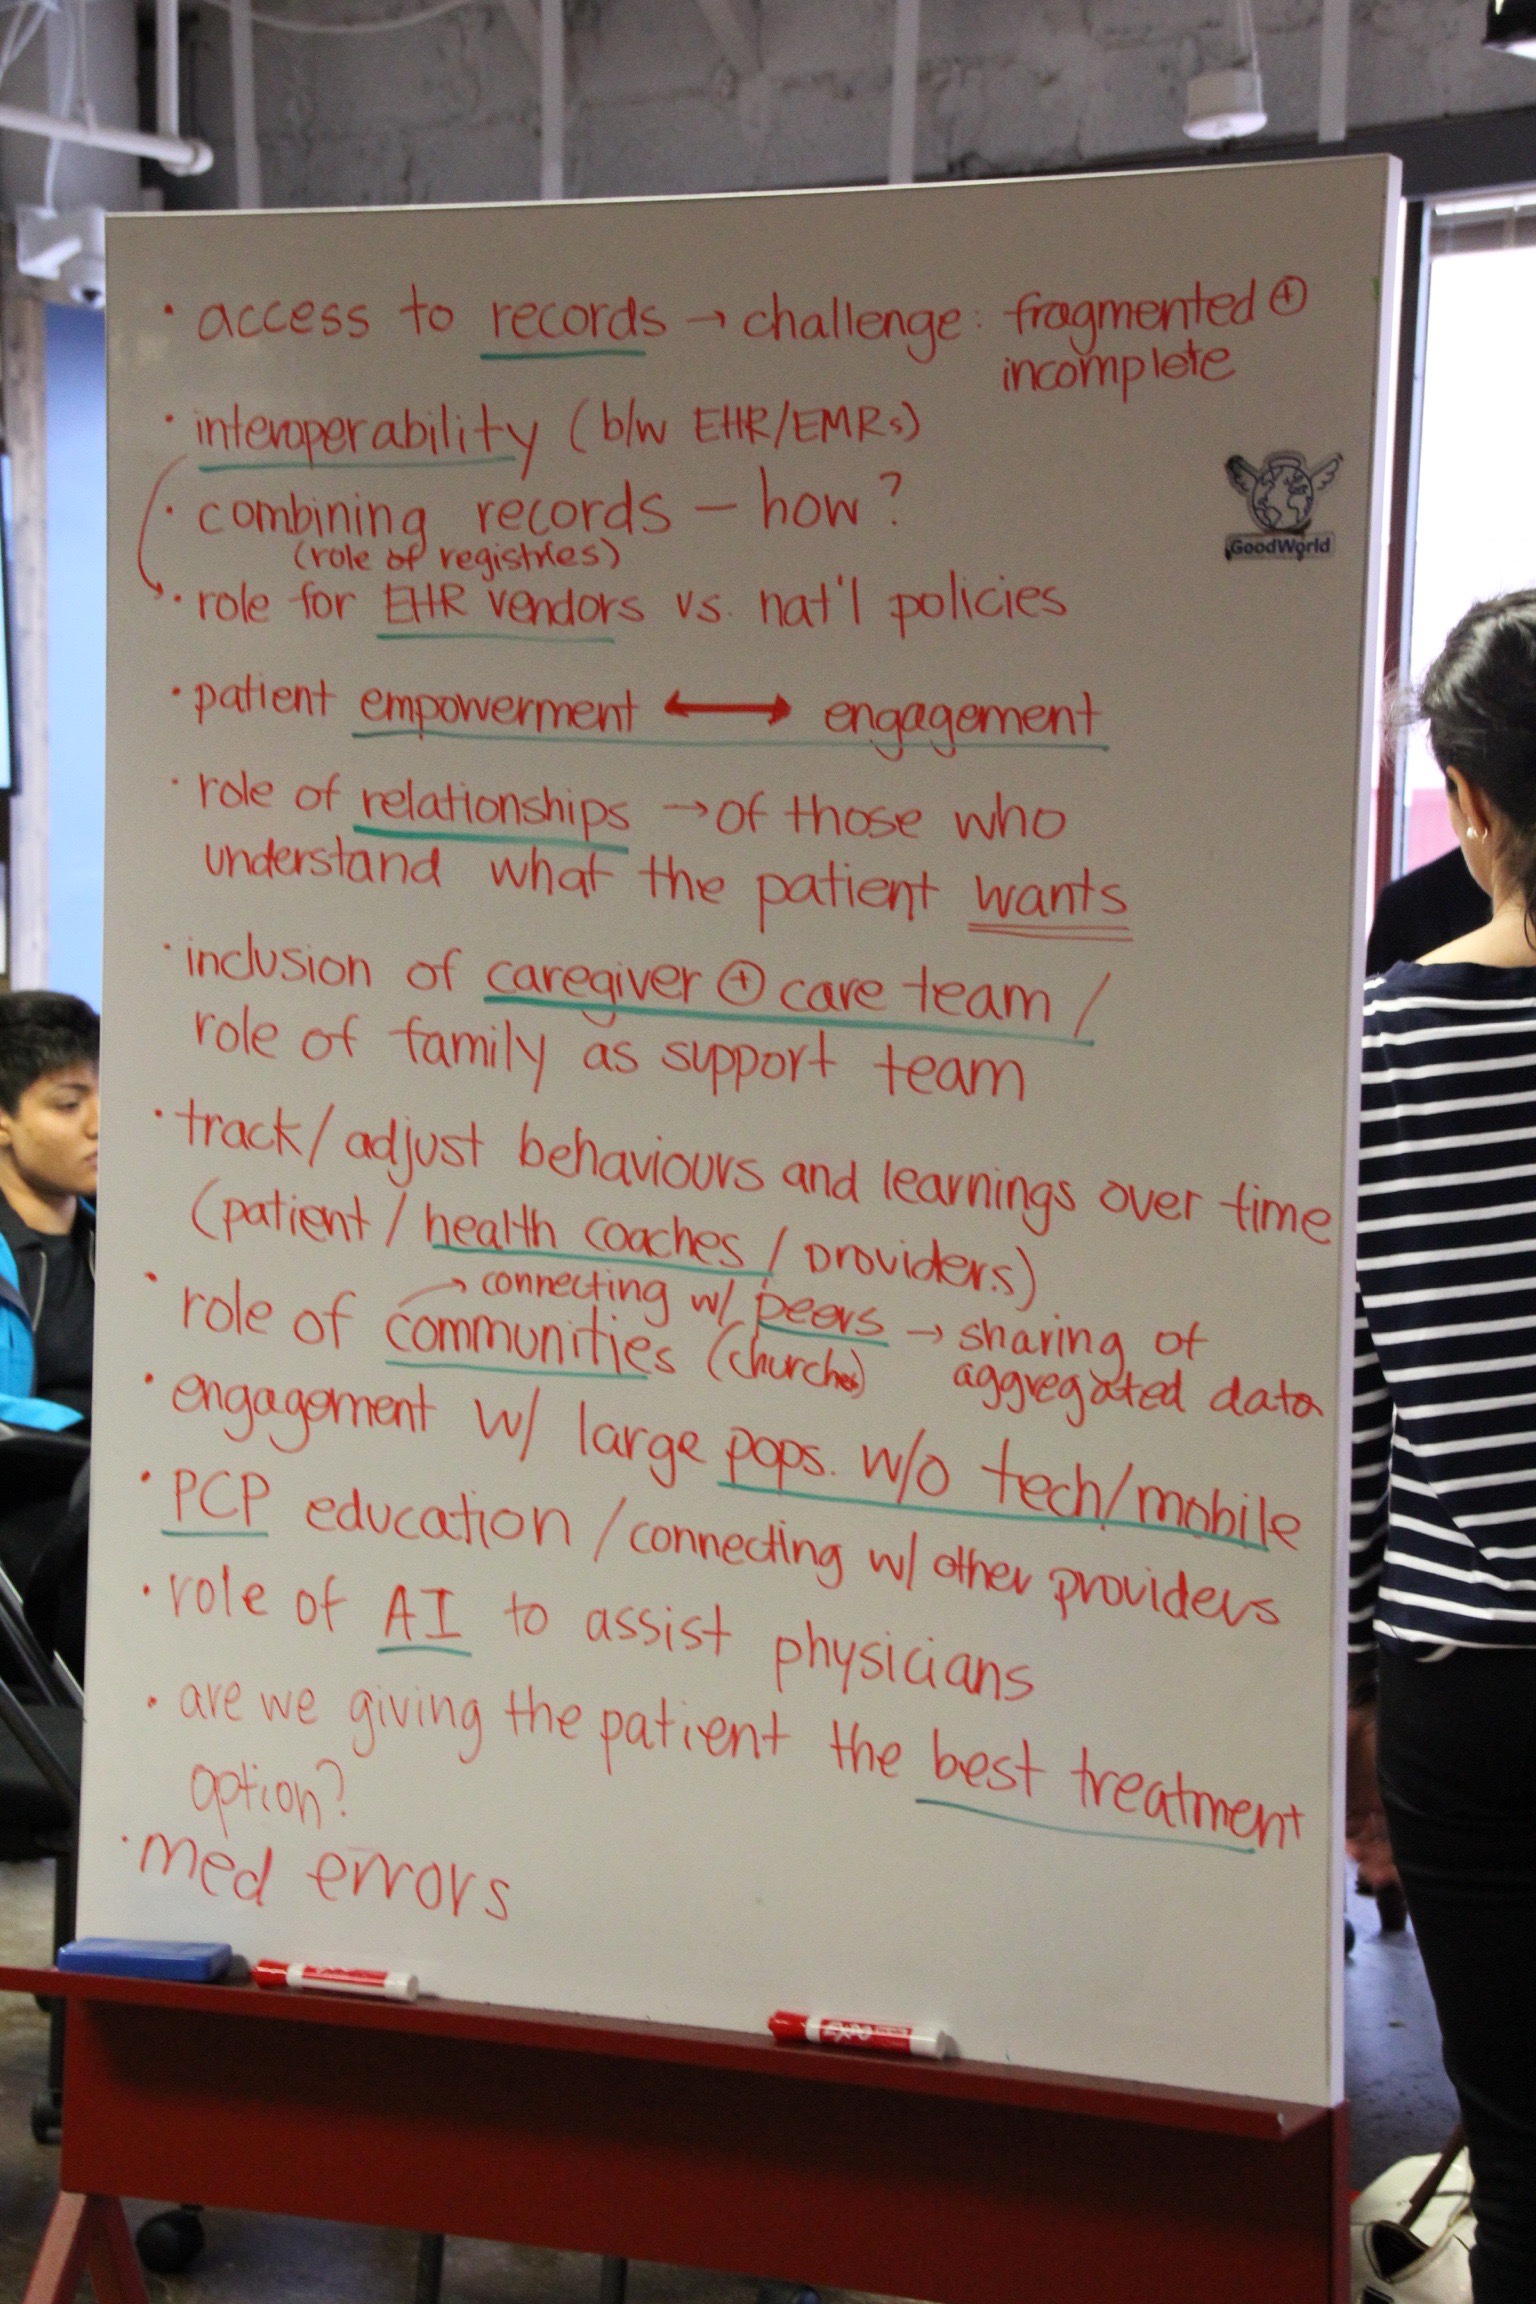 · access to records → challenge: fragmented ⊕
incomplete
· interoperability (b/w EHR/EMRs)
· combining records – how?
(role of registries)
· role for EHR vendors vs. nat'l policies
· patient empowerment ↔ engagement
· role of relationships → of those who
understand what the patient wants
· inclusion of caregiver ⊕ care team /
role of family as support team
· track/adjust behaviours and learnings over time
(patient / health coaches / providers)
→ connecting w/ peers → sharing of
· role of communities (churches) aggregated data
· engagement w/ large pops. w/o tech/mobile
· PCP education / connecting w/ other providers
· role of AI to assist physicians
· are we giving the patient the best treatment
option?
· med errors
GoodWorld
EXPO